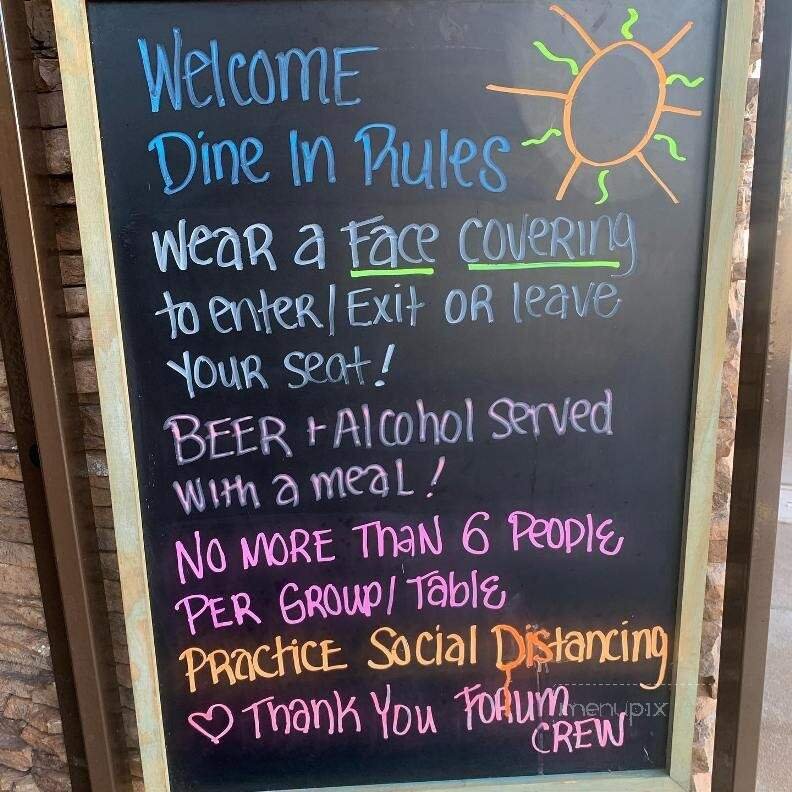 Welcome
Dine In Rules
Wear a Face Covering
to enter/Exit or leave
your seat!
Beer + Alcohol Served
With a meal!
No more than 6 People
Per Group/Table
Practice Social Distancing
♡ Thank You Forum
Crew
menupix